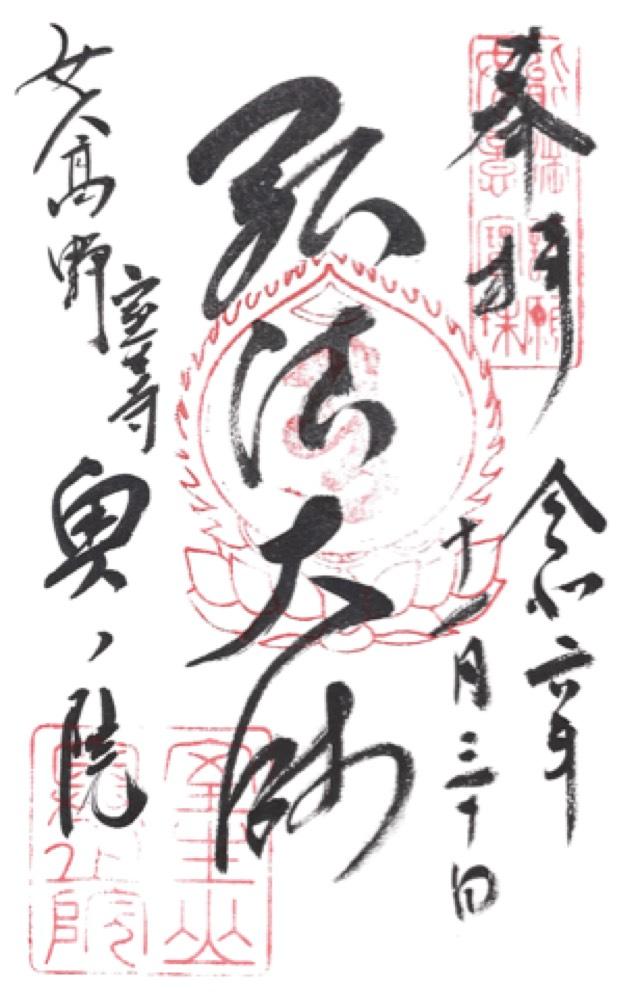 奉拝
令和六年
十一月三十日
弘法大師
女人高野
室生寺
奥ノ院
室生山
奥之院